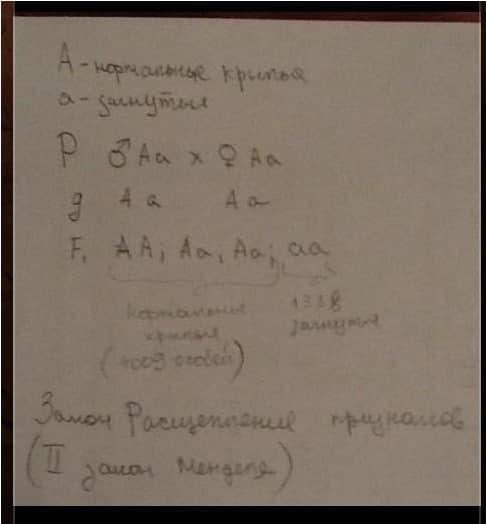 A - нормальные крылья
a - загнутые
P ♂ Aa x ♀ Aa
g A a A a
F₁ AA, Aa, Aa, aa
нормальные
крылья
(4009 особей)
загнутые
Закон Расщепление признаков
(II закон Менделя)